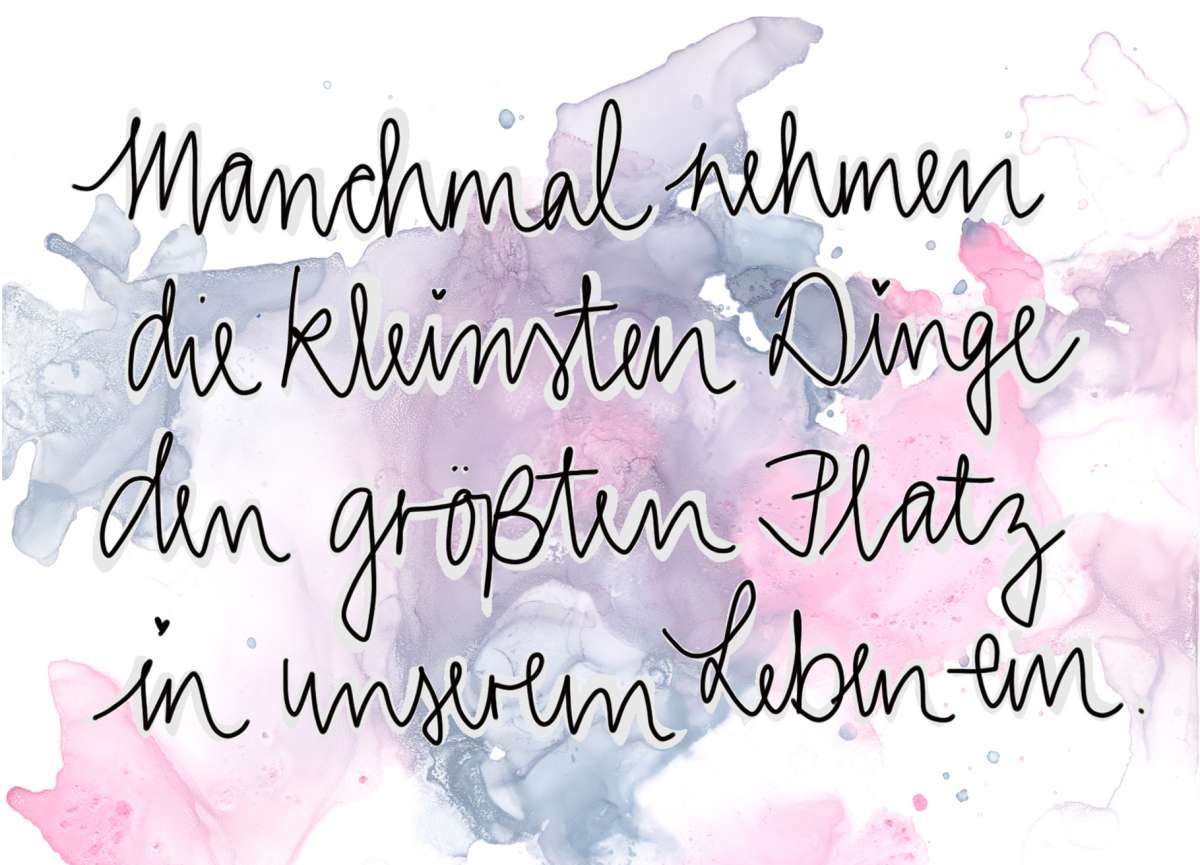 Manchmal nehmen
die kleinsten Dinge
den größten Platz
in unserem Leben ein.